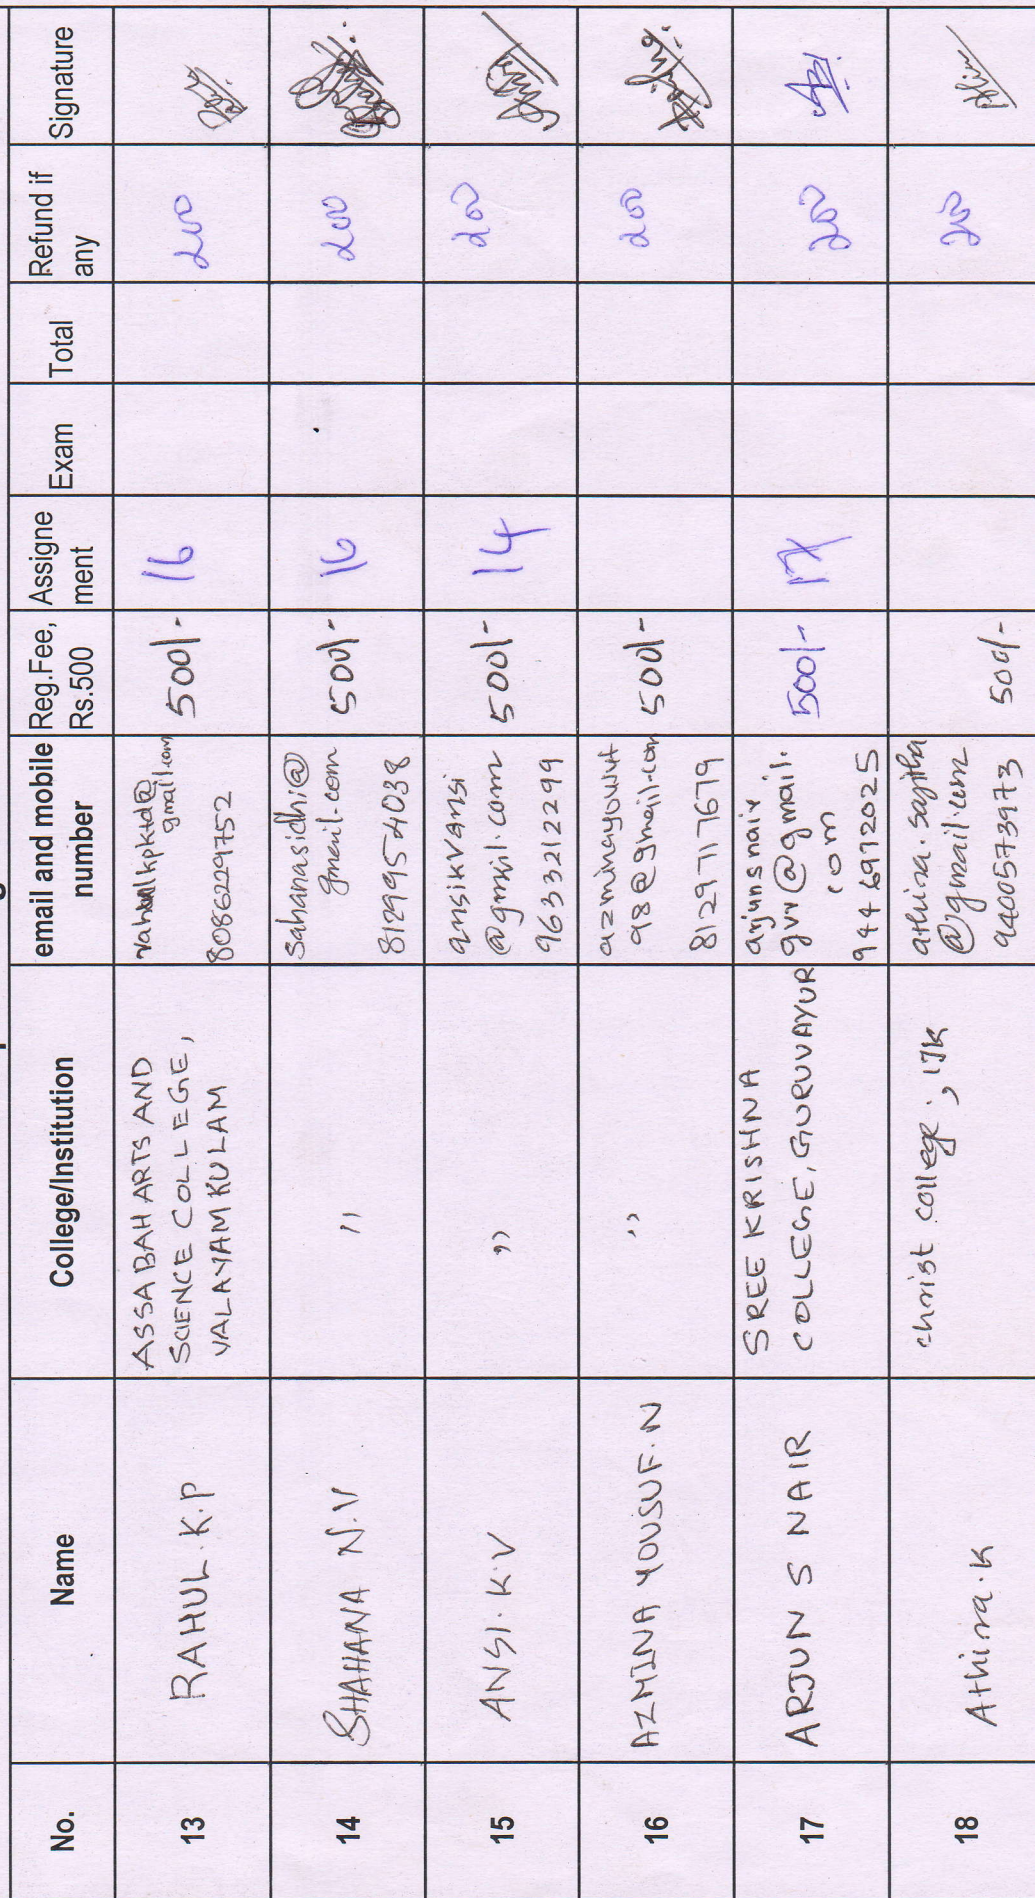 No.
Name
College/Institution
email and mobile
number
Reg.Fee,
Rs.500
Assigne
ment
Exam
Total
Refund if
any
Signature
13
RAHUL.K.P
ASSABAH ARTS AND
SCIENCE COLLEGE,
VALAYAMKULAM
rahulkpktd@
gmail.com
8086229752
500/-
16
200
14
SHAHANA N.V
"
Sahanasidhi@
gmail.com
8129954038
500/-
16
200
15
ANSI.K.V
"
ansikvansi
@gmail.com
9633212299
500/-
14
200
16
AZMINA YOUSUF.N
"
azminayousuf
98@gmail.com
8129717679
500/-
200
17
ARJUN S NAIR
SREE KRISHNA
COLLEGE, GURUVAYUR
arjunsnair
gvr@gmail.
com
9446972025
500/-
17
200
18
Athira.K
christ college, IJK
athira.sajitha
@gmail.com
9400573973
500/-
200